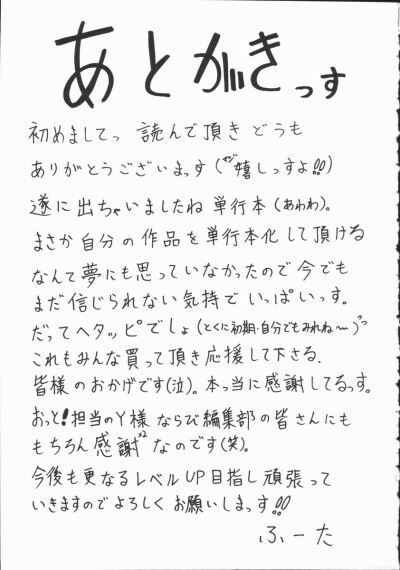 あとがきっす
初めましてっ 読んで頂き どうも
ありがとうございまっす(マジ嬉しっすよ!!)
遂に出ちゃいましたね単行本(あわわ)。
まさか自分の作品を単行本化して頂ける
なんて夢にも思っていなかったので今でも
まだ信じられない気持でいっぱいっす。
だってヘタッピでしょ(とくに初期・自分でもみれね〜)
これもみんな買って頂き応援して下さる、
皆様のおかげです(泣)。本っ当に感謝してるっす。
おっと!担当のY様ならび編集部の皆さんにも
もちろん感謝×2なのです(笑)。
今後も更なるレベルUP目指し頑張って
いきますのでよろしくお願いしまっす!!
ふーた